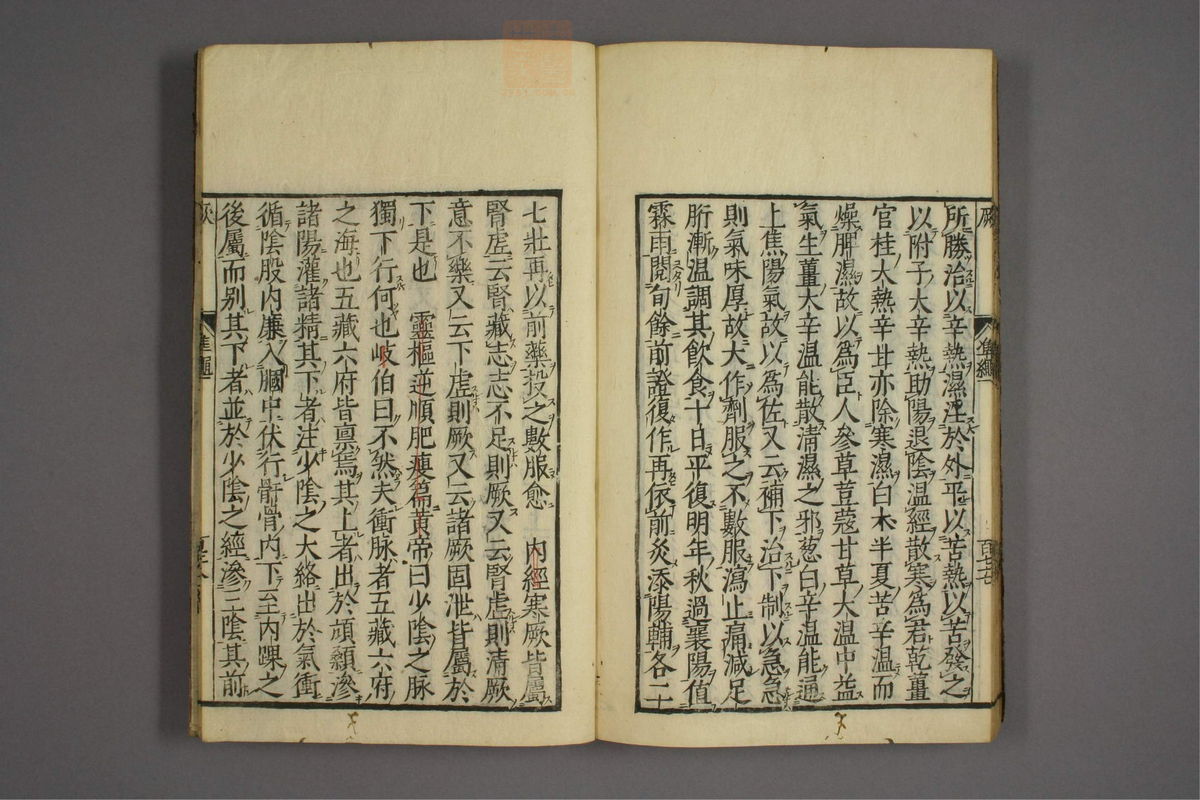 所勝治以辛熱濕淫於外平以苦熱以苦發之
以附子大辛熱助陽退陰温經散寒為君乾薑
官桂大熱辛甘亦除寒濕白朮半夏苦辛温而
燥脾濕故以為臣人參草荳蔲甘草大温中益
氣生薑大辛温能散清濕之邪葱白辛温能通
上焦陽氣故以為佐又云補下治下制以急急
則氣味厚故大作劑服之不數服瀉止痛減足
胻漸温調其飲食十日平復明年秋過襄陽值
霖雨閱旬餘前證復作再依前灸添陽輔各二十
七壯再以前藥投之數服愈 内經寒厥皆屬
腎虛云腎藏志志不足則厥又云腎虛則清厥
意不樂又云下虛則厥又云諸厥固泄皆屬於
下是也 靈樞逆順肥瘦篇黄帝曰少陰之脉
獨下行何也岐伯曰不然夫衝脉者五藏六府
之海也五藏六府皆禀焉其上者出於頏顙滲
諸陽灌諸精其下者注少陰之大絡出於氣衝
循陰股内廉入膕中伏行骭骨内下至内踝之
後屬而别其下者並於少陰之經滲三陰其前